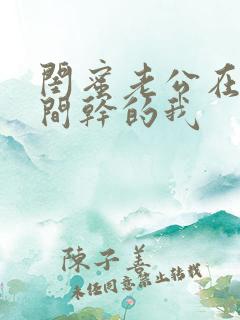 閨蜜老公在
間幹的我
陳子善
未經同意禁止轉載